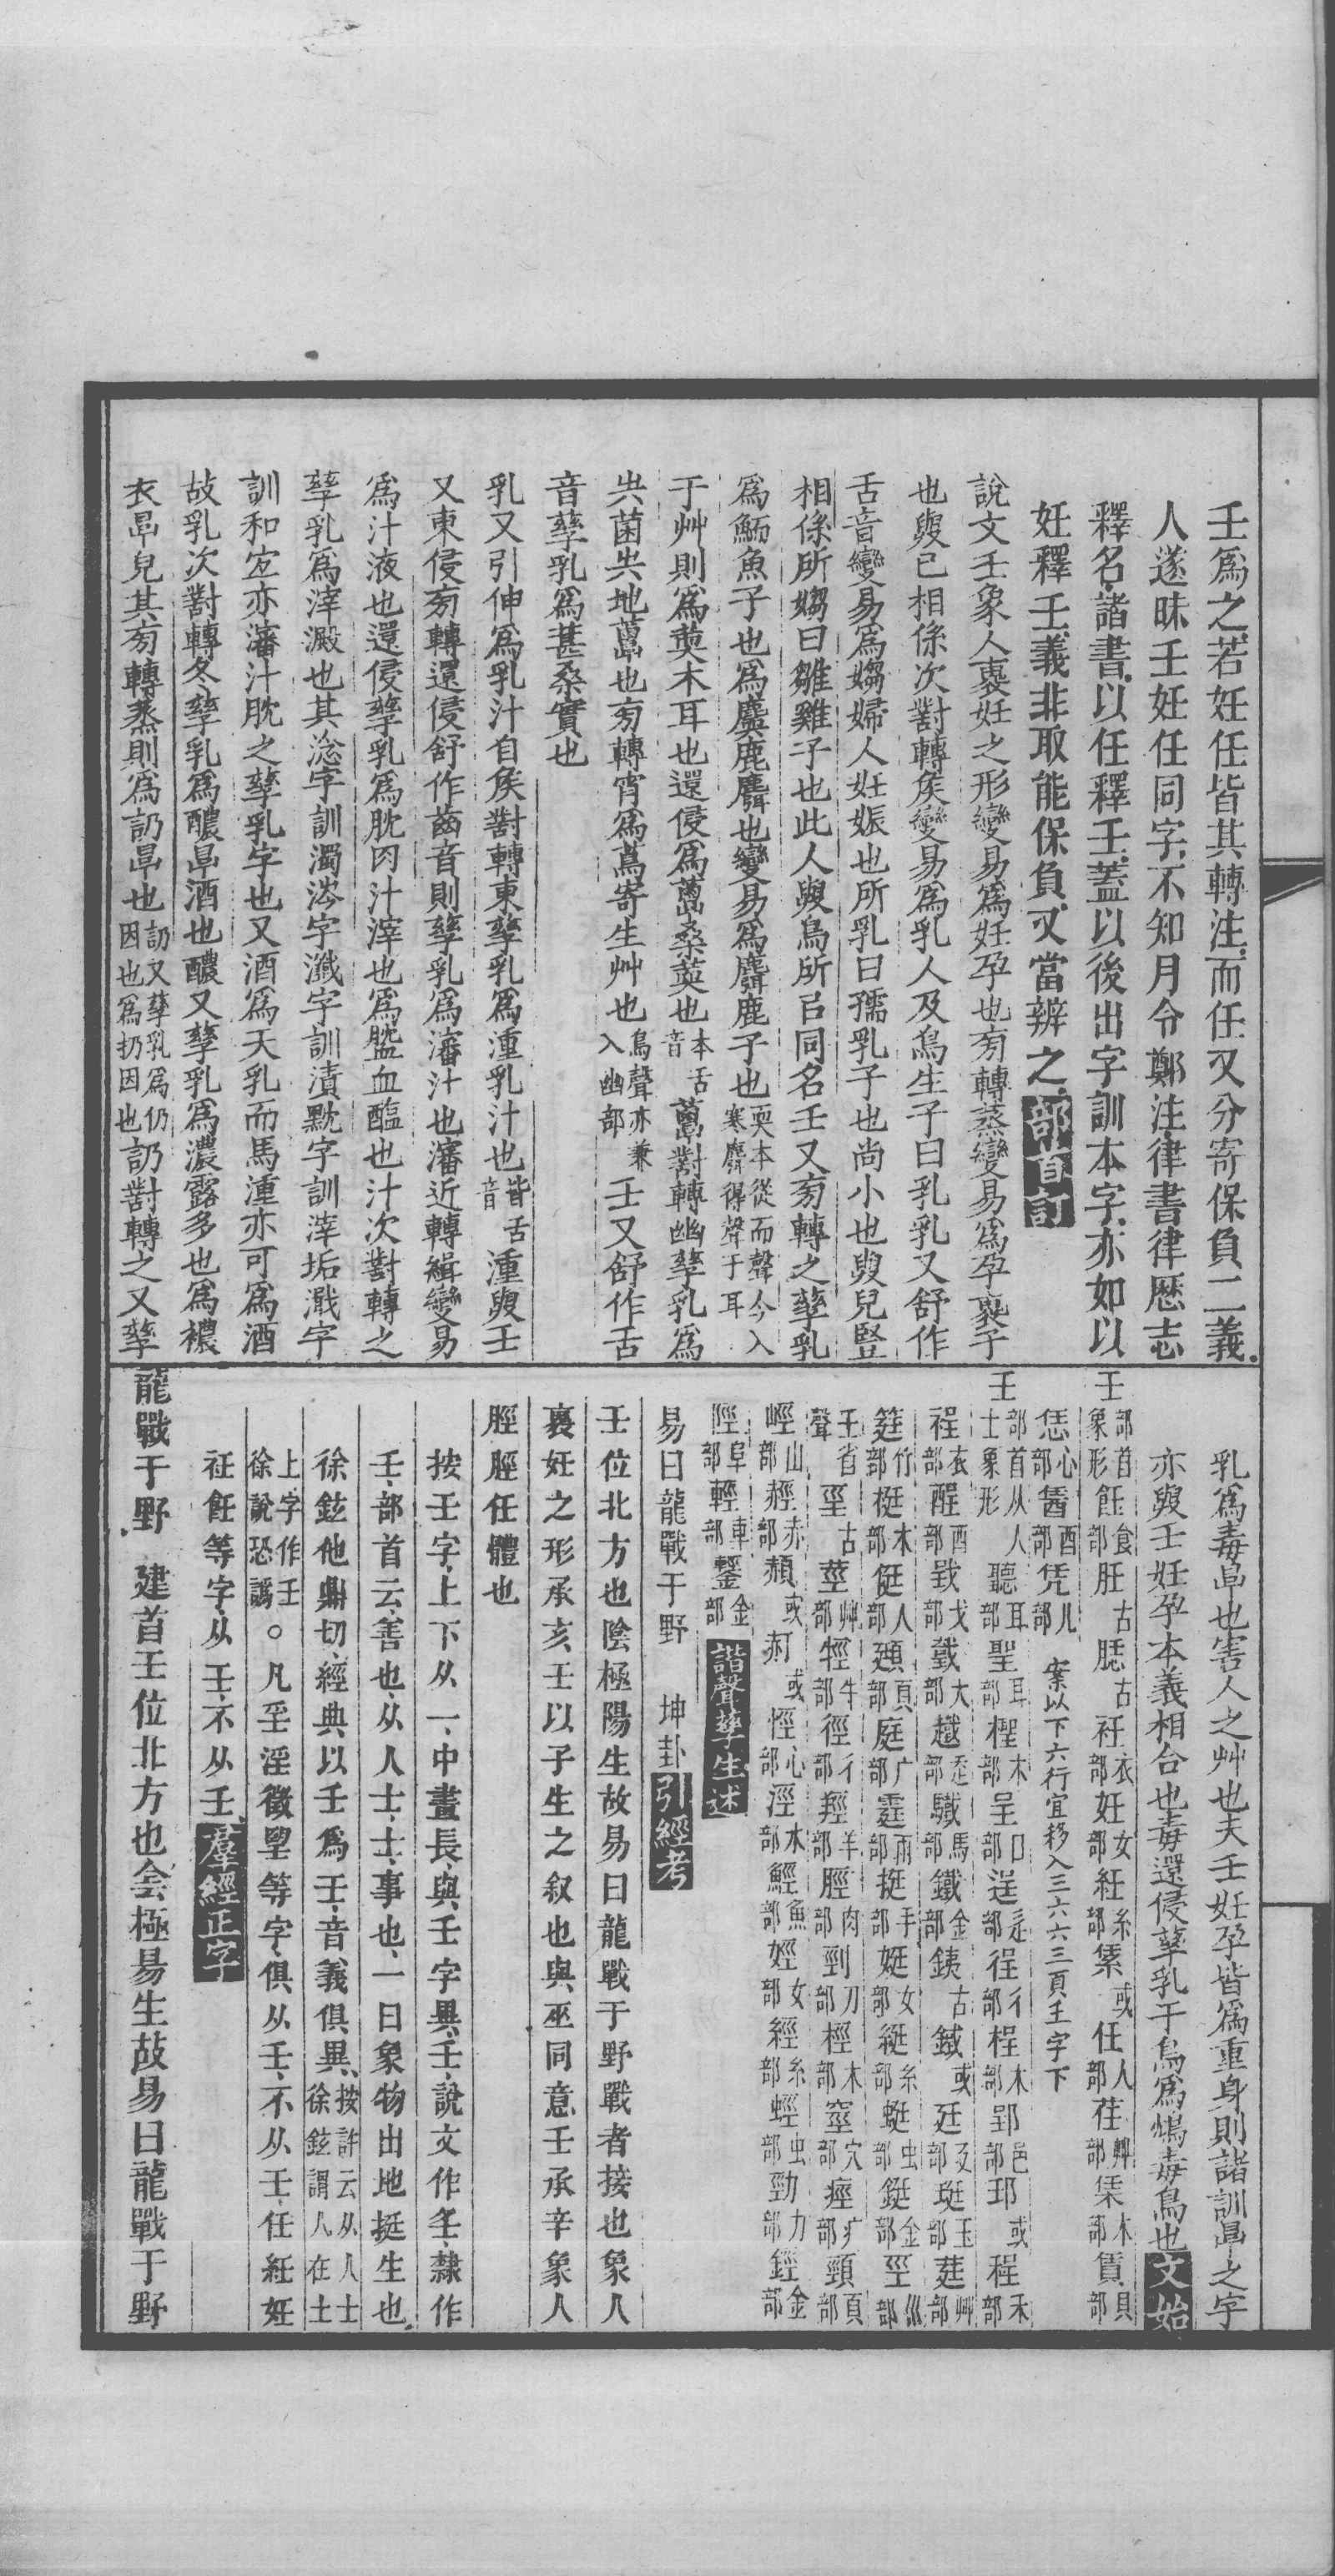 壬爲之若妊任皆其轉注而任又分寄保負二義
人遂昧壬妊任同字不知月令鄭注律書律歷志
釋名諸書以任釋壬蓋以後出字訓本字亦如以
妊釋壬義非取能保負又當辨之部首訂
說文壬象人褢妊之形變易爲妊孕也㫄轉蒸變易爲孕褢子
也與巳相係次對轉矦變易爲乳人及鳥生子曰乳乳又舒作
舌音變易爲媰婦人妊娠也所乳曰孺乳子也尚小也與兒豎
相係所媰曰雛雞子也此人與鳥所㠯同名壬又㫄轉之孳乳
爲鮞魚子也爲麌鹿麛也變易爲麛鹿子也耎本從而聲今入寒麛得聲于耳
于艸則爲䓴木耳也還侵爲葚桑䓴也本舌音葚對轉幽孳乳爲
𡴆菌𡴆地蕈也㫄轉宵爲蔦寄生艸也鳥聲亦兼入幽部壬又舒作舌
音孳乳爲葚桑實也
乳又引伸爲乳汁自矦對轉東孳乳爲湩乳汁也皆舌音湩與壬
又東侵㫄轉還侵舒作齒音則孳乳爲瀋汁也瀋近轉緝變易
爲汁液也還侵孳乳爲肬肉汁滓也爲䀋血醢也汁次對轉之
孳乳爲滓澱也其淰字訓濁涔字瀸字訓漬黕字訓滓垢濈字
訓和宐亦瀋汁肬之孳乳字也又酒爲天乳而馬湩亦可爲酒
故乳次對轉冬孳乳爲醲㫗酒也醲又孳乳爲濃露多也爲襛
衣㫗皃其㫄轉蒸則爲訒㫗也訒又孳乳爲仍因也爲扔因也訒對轉之又孳
乳爲毒㫗也害人之艸也夫壬妊孕皆爲重身則諸訓㫗之字
亦與壬妊孕本義相合也毒還侵孳乳于鳥爲鴆毒鳥也文始
壬部首象形飪食部䏕古恁古衽衣部妊女部紝糸部䋕或任人部荏艸部栠木部賃貝部
恁心部䣼酉部凭几部　案以下六行宜移入三六六三頁𡈼字下
𡈼部首从人士象形聽耳部聖耳部檉木部呈口部逞辵部徎彳部桯木部郢邑部䣆或程禾部
裎衣部酲酉部㦸戈部𢧜大部趩辵部驖馬部鐵金部銕古鐵或廷廴部珽玉部莛艸部
筳竹部梃木部侹人部頲頁部庭广部霆雨部挺手部娗女部綎糸部蜓虫部鋌金部巠巛部
𡈼省聲𡇯古莖艸部牼牛部徑彳部羥羊部脛肉部剄刀部桱木部窒穴部痙疒部頸頁部
峌山部䞓赤部赬或䞓或悭心部涇水部鯹魚部娙女部經糸部蛵虫部勁力部鋞金部
陘阜部輕車部鑋金部諧聲孳生述
易曰龍戰于野　坤卦引經考
壬位北方也陰極陽生故易曰龍戰于野戰者接也象人
褢妊之形承亥壬以子生之叙也與巫同意壬承辛象人
脛脛任體也
按壬字上下从一中畫長與𡈼字異𡈼說文作𡈼隸作
𡈼部首云善也从人士士事也一曰象物出地挺生也
徐鉉他鼎切經典以壬爲𡈼音義俱異按許云从人士徐鉉謂人在土
上字作𡈼徐說恐譌○凡呈淫徵望等字俱从𡈼不从壬任紝妊
衽飪等字从壬不从𡈼羣經正字
龍戰于野　建首壬位北方也侌極昜生故易曰龍戰于野